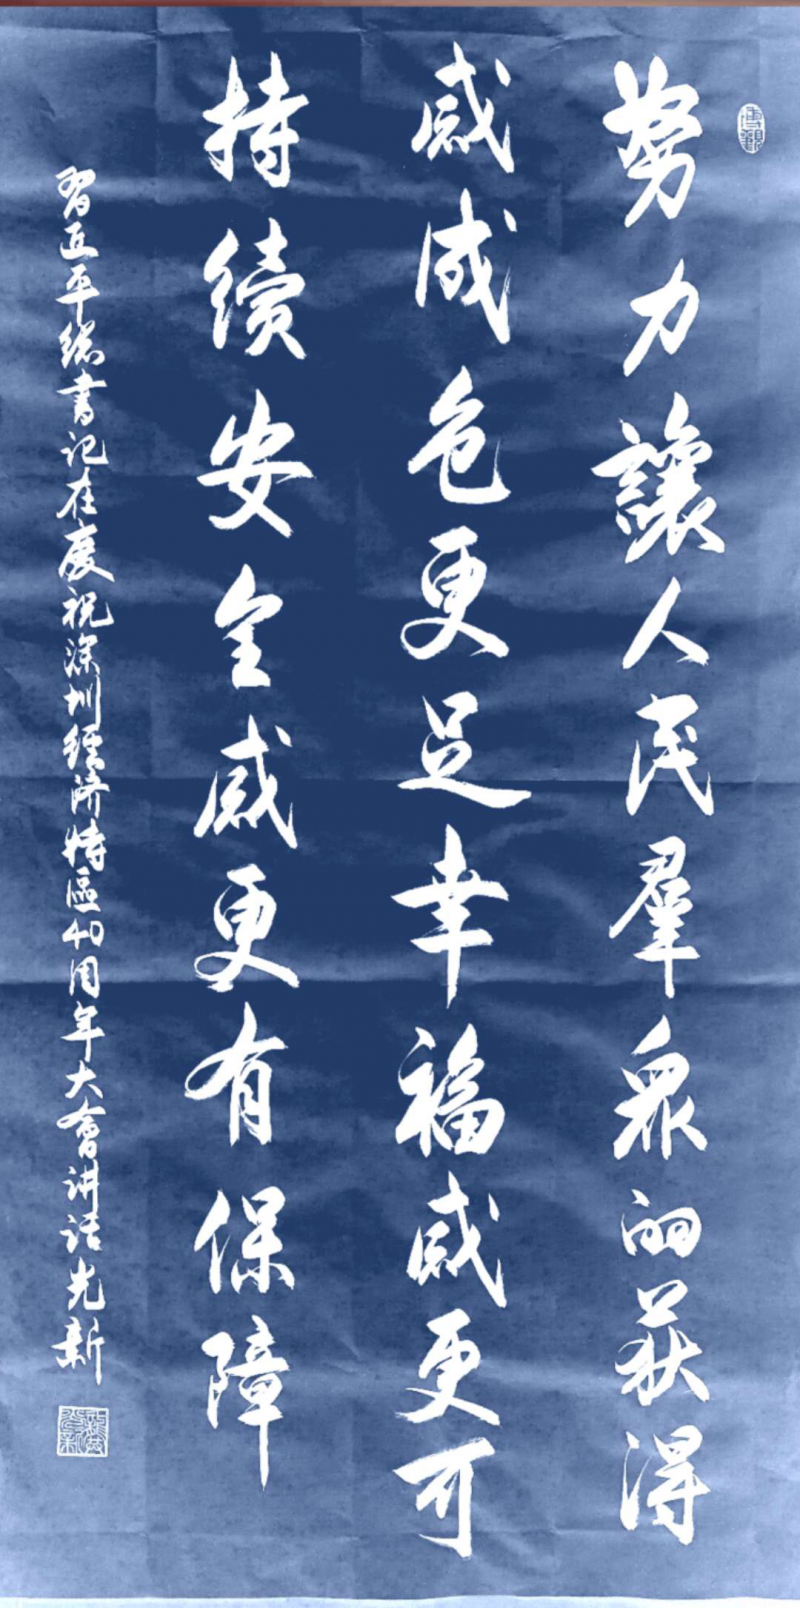 努力讓人民羣眾的获得
感成色更足幸福感更可
持续安全感更有保障
習近平總書记在慶祝深圳經济特區40周年大會讲话光新